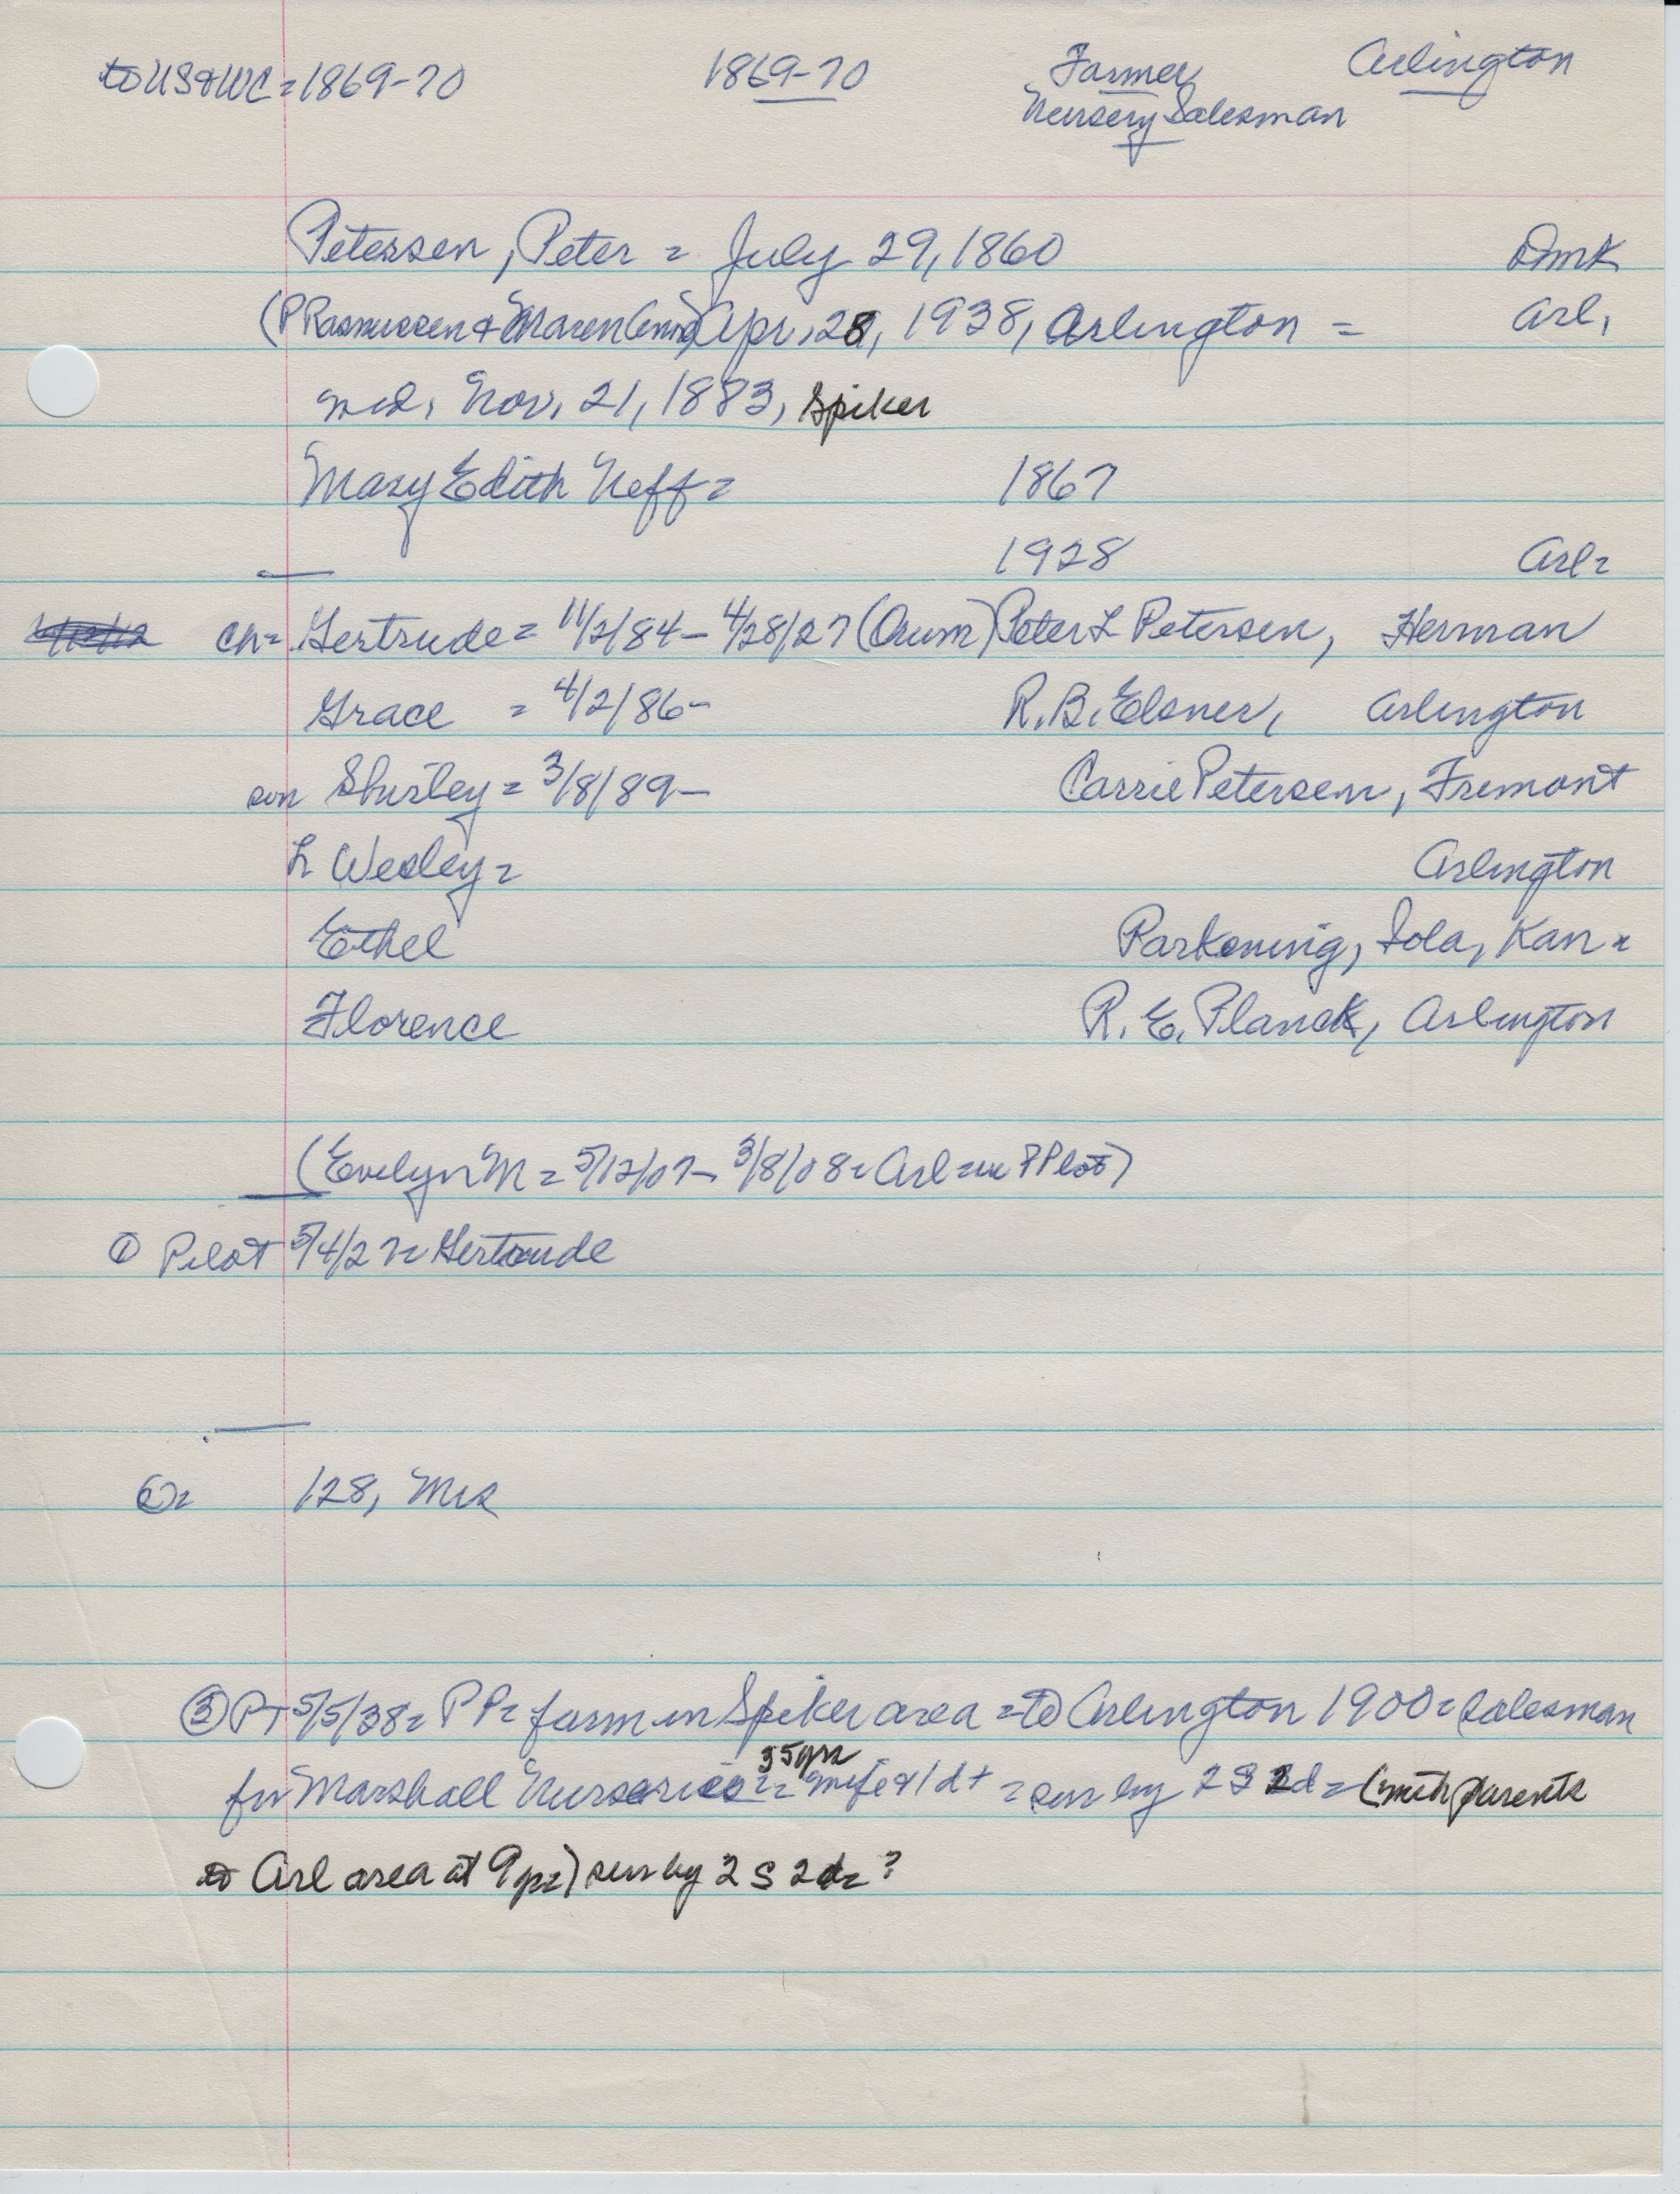 to US & WC = 1869-70 1869-70 Farmer Arlington
Nursery Salesman
Petersen, Peter = July 29, 1860 Dmk
(P Rasmussen & Maren) Apr. 28, 1938, Arlington = Arl.
md. Nov. 21, 1883, Spiker
Mary Edith Neff = 1867
1928 Arl =
ch = Gertrude = 11/2/84 - 4/28/27 (Orum) Peter L Petersen, Herman
Grace = 4/2/86 - R. B. Elsner, Arlington
son Shirley = 3/8/89 - Carrie Petersen, Fremont
L Wesley = Arlington
Ethel Parkening, Iola, Kan =
Florence R. E. Planck, Arlington
(Evelyn M = 5/12/07 - 3/8/08 = Arl = in PPlot)
① Pilot 5/4/27 = Gertrude
128, Mrs
③ PT 5/5/38 = PP = farm in Spiker area = to Arlington 1900 = salesman
for Marshall Nurseries = 35 yrs = wife & 1 d + = sur by 2 S 2 d = (with parents
to Arl area at 9 yrs) sur by 2 S 2 d = ?